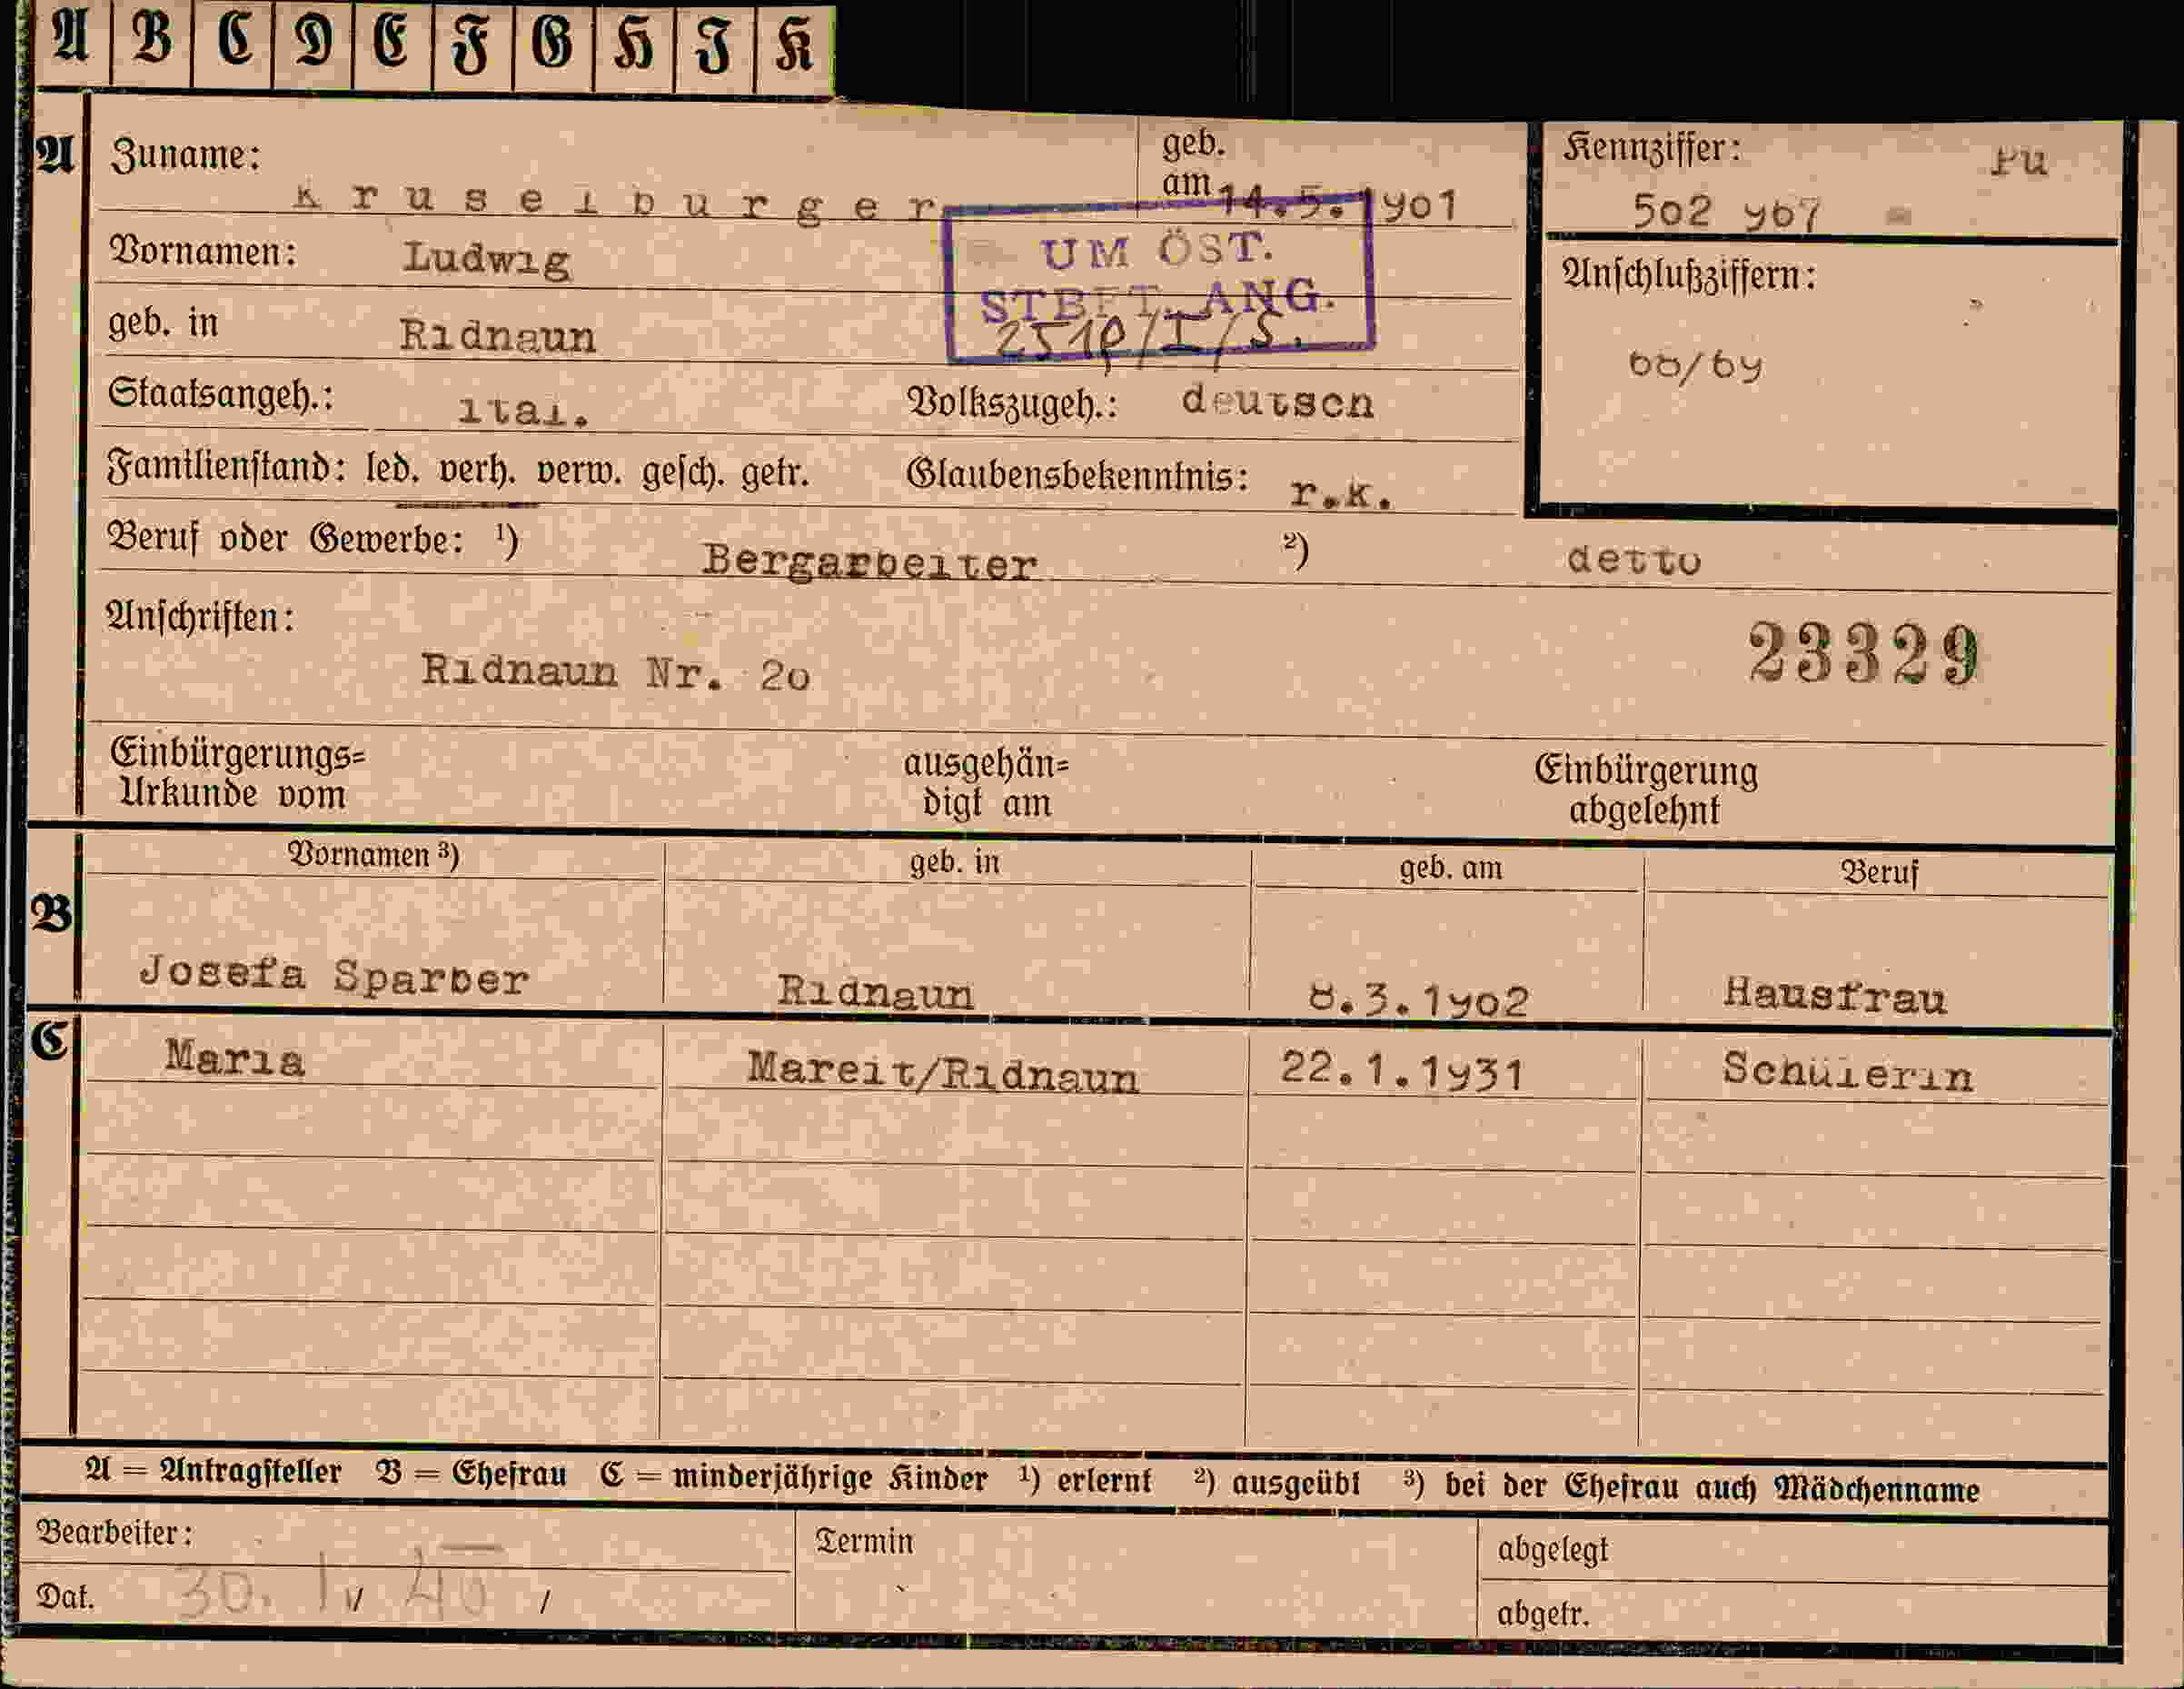 A B C D E F G H I K
A Zuname: Kruselburger geb. am 14.5.1901
Kennziffer: Pu
502 967
UM ÖST.
STBET. ANG.
Vornamen: Ludwig
Anschlußziffern:
geb. in Ridnaun
68/69
Staatsangeh.: ital. Volkszugeh.: deutsch
Familienstand: led. verh. verw. gesch. getr. Glaubensbekenntnis: r.k.
Beruf oder Gewerbe: 1) Bergarbeiter 2) detto
Anschriften:
23329
Ridnaun Nr. 20
Einbürgerungs= ausgehän= Einbürgerung
Urkunde vom digt am abgelehnt
Vornamen 3) geb. in geb. am Beruf
B
Josefa Sparber Ridnaun 8.3.1902 Hausfrau
C Maria Mareit/Ridnaun 22.1.1931 Schülerin
A = Antragsteller B = Ehefrau C = minderjährige Kinder 1) erlernt 2) ausgeübt 3) bei der Ehefrau auch Mädchenname
Bearbeiter: Termin abgelegt
Dat. 30. 40 abgetr.